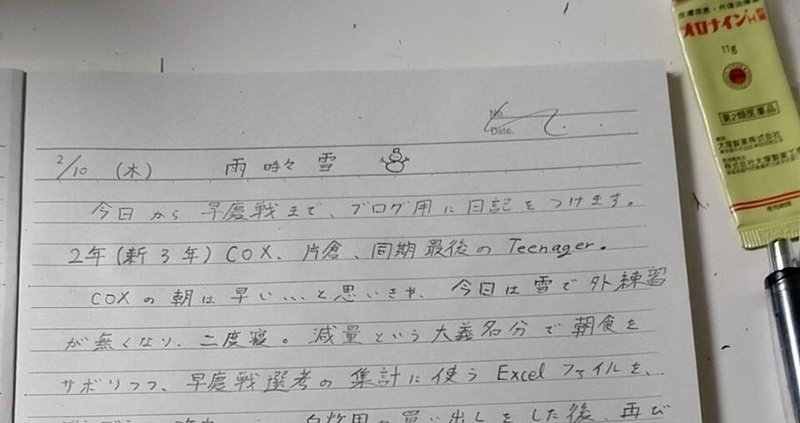 No.
Date.
2/10 (木) 雨時々雪
今日から早慶戦まで、ブログ用に日記をつけます。
2年(新3年)COX、片倉、同期最後のTeenager。
COXの朝は早い…と思いきや、今日は雪で外練習
が無くなり、二度寝。減量という大義名分で朝食を
サボりつつ、早慶戦選考の集計に使うExcelファイルを、
買い出しをした後、再び
皮膚疾患・外傷治療薬
オロナインH軟
11g
第2類医薬品
大塚製薬株式会社
株式会社大塚製薬工場